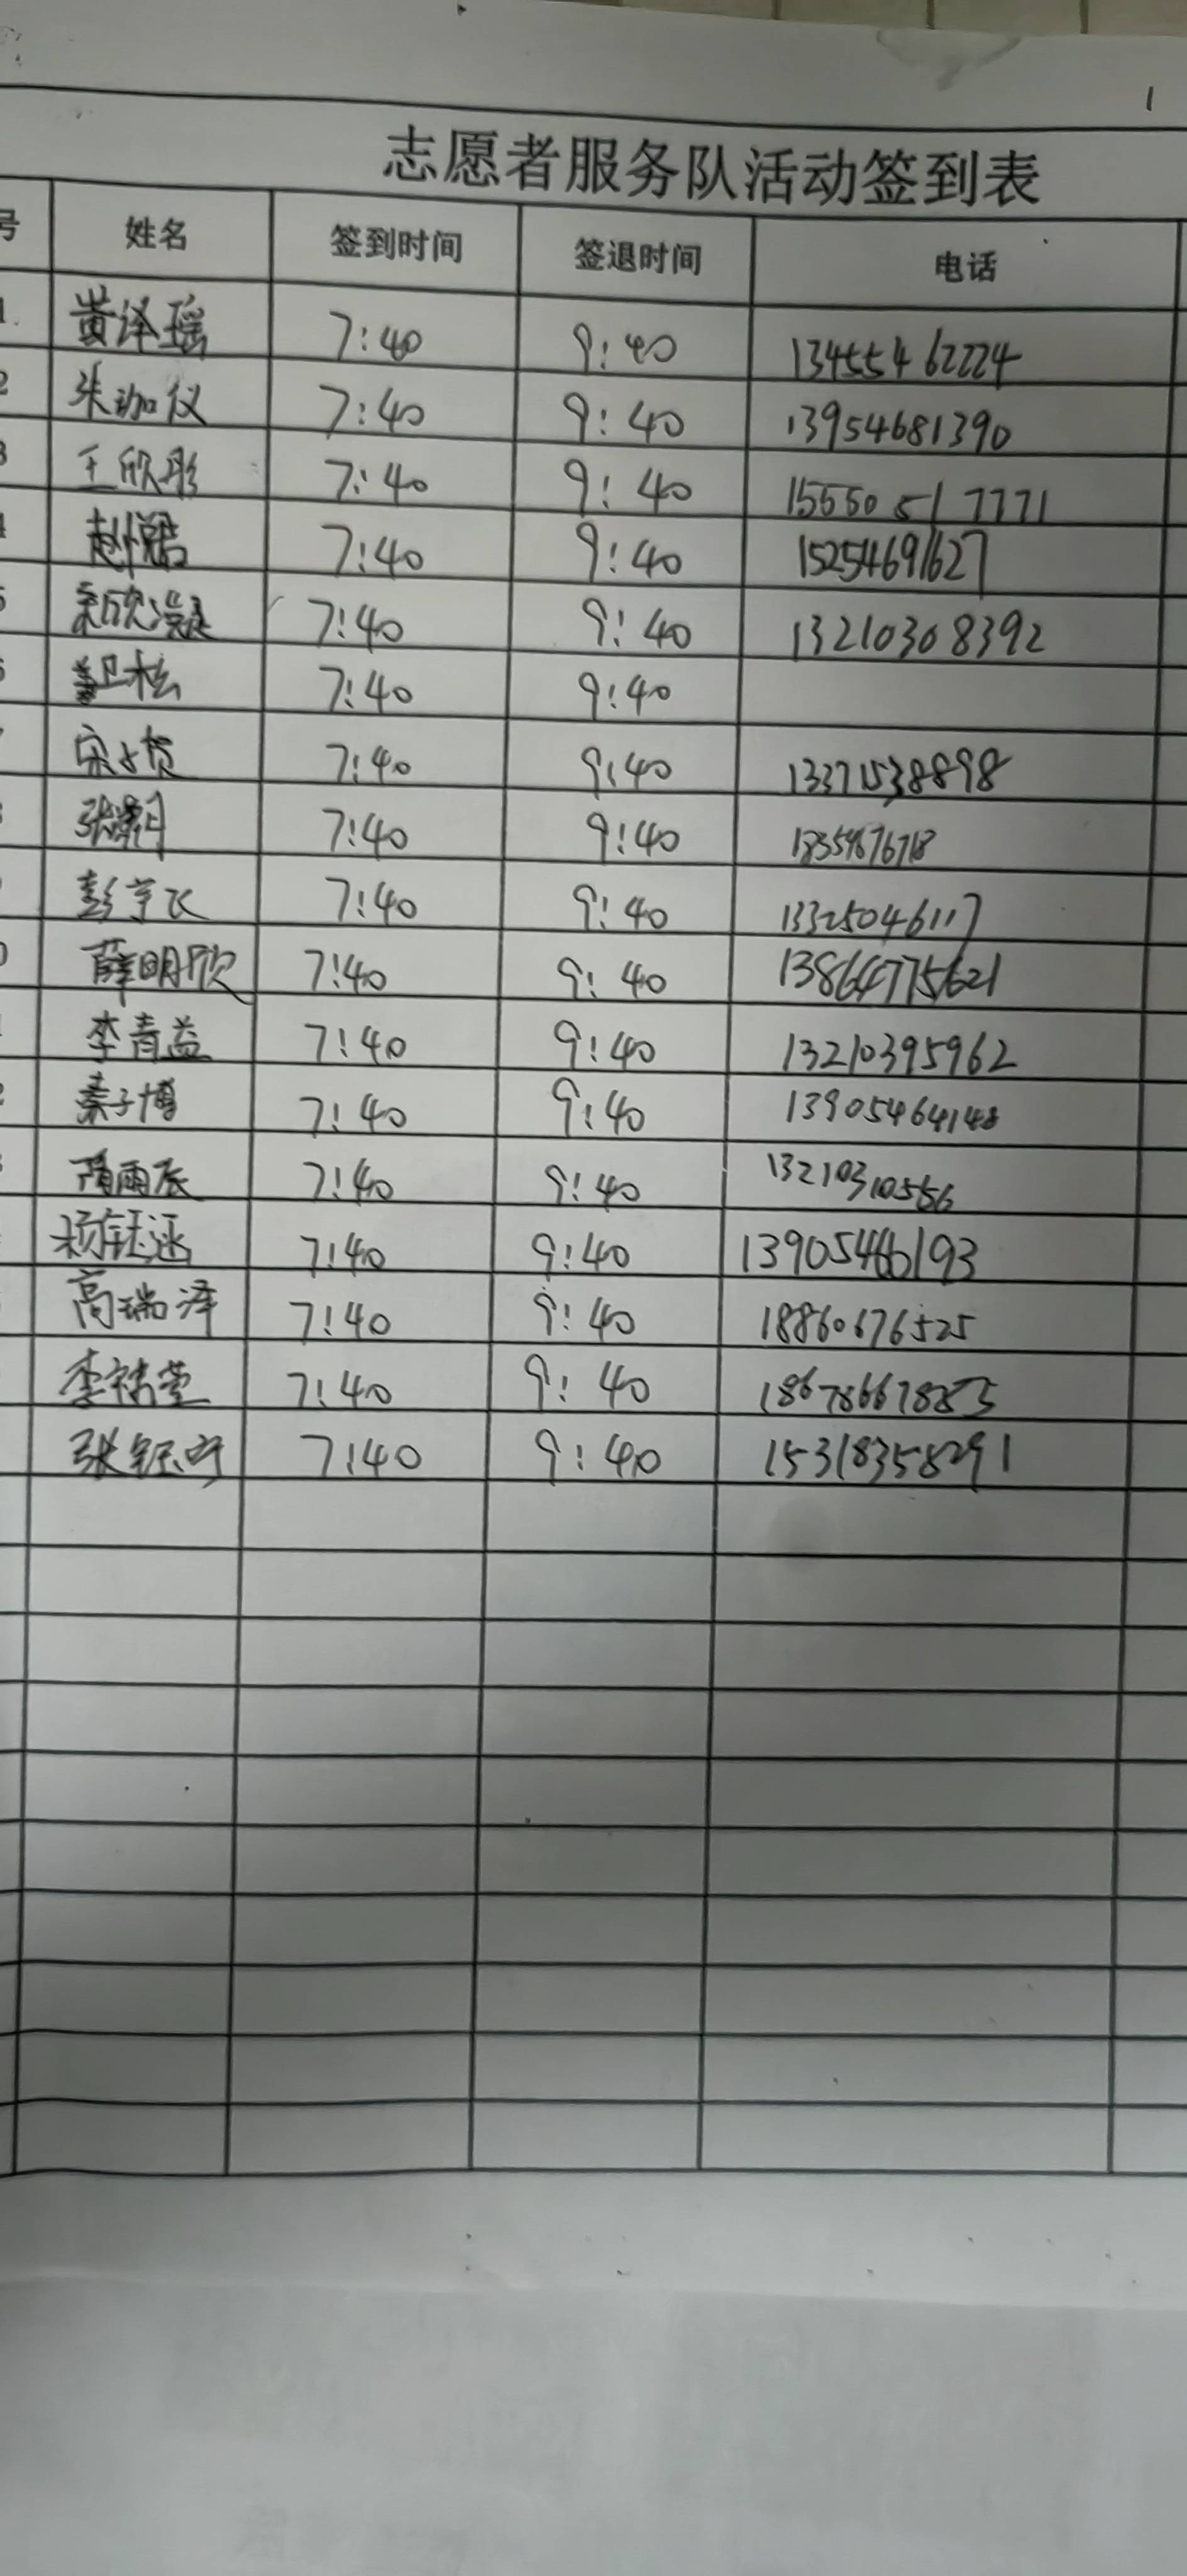 1
志愿者服务队活动签到表
号 姓名 签到时间 签退时间 电话
1 黄泽瑶 7:40 9:40 134555462224
2 张珈仪 7:40 9:40 13954681390
3 王欣彤 7:40 9:40 15550517771
4 赵 7:40 9:40 15254691627
5 欣凝 7:40 9:40 13210308392
6 卫松 7:40 9:40
宋 7:40 9:40 13371538898
张 7:40 9:40
彭宇飞 7:40 9:40 13325046117
0 薛明欣 7:40 9:40 13864775621
李青益 7:40 9:40 13210395962
2 秦子博 7:40 9:40 13905464148
隋雨辰 7:40 9:40 13210310556
杨钰涵 7:40 9:40 13905460193
高瑞泽 7:40 9:40 18860676525
李 7:40 9:40
张钰 7:40 9:40 15318358291